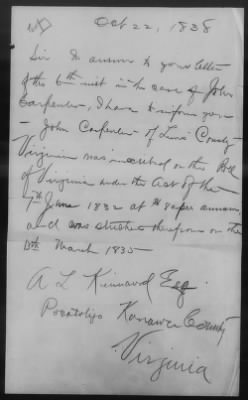 Oct 22, 1838
Sir In answer to your letter
of the 6th inst in the case of John
Carpenter, I have to inform you
John Carpenter of Lewis County
Virginia was inscribed on the Roll
of Virginia under the Act of the
7th June 1832 at per annum
and was stricken therefrom on the
March 1835
A L Kinnard Esq
Pocatolijo Kanawa County
Virginia